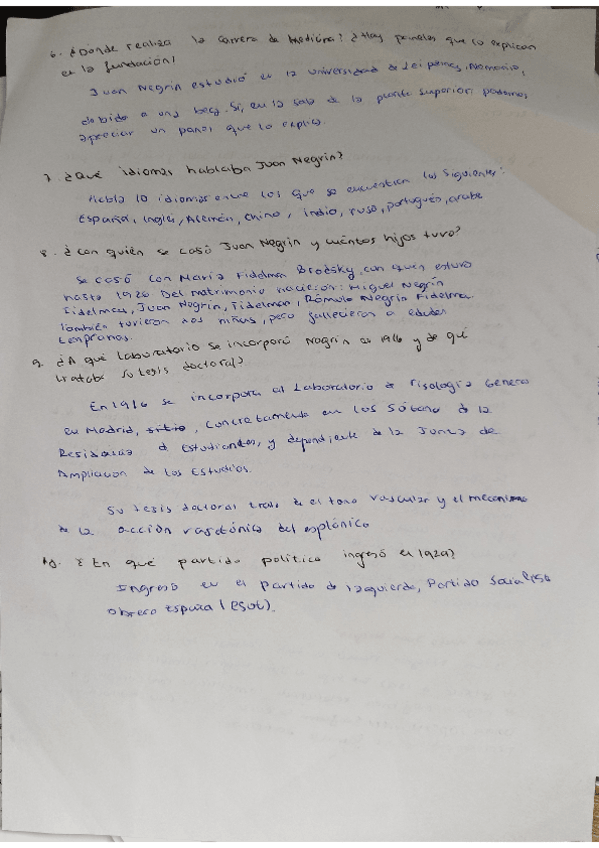 6. ¿Donde realiza la carrera de medicina? ¿Hay paneles que lo explican
en la fundación?
Juan Negrín estudió en la universidad de Leipzing, Alemania,
debido a una beca. Si, en la sala de la planta superior podemos
apreciar un panel que lo explica.
7. ¿Qué idiomas hablaba Juan Negrin?
Habla 10 idiomas entre los que se encuentran los siguientes:
España, Inglés, Alemán, chino, indio, ruso, portugués, arabe
8. ¿Con quién se casó Juan Negrin y cuántos hijos tuvo?
Se casó con María Fidelman Brodsky, con quien estuvo
hasta 1926. Del matrimonio nacieron: Miguel Negrín
Fidelman, Juan Negrín, Fidelman, Rómulo Negrín Fidelma.
También tuvieron dos niñas, pero fallecieron a edades
tempranas.
9. ¿A qué laboratorio se incorporó Negrin en 1916 y de qué
trataba su tesis doctoral?
En 1916 se incorpora al Laboratorio de Fisología General
en Madrid, , concretamente en los Sótano de la
Residencia de Estudiantes, y dependiente de la Junta de
Ampliación de los Estudios.
Su tesis doctoral trata de el tono vascular y el mecanismo
de la acción vasotónica del esplénico
10. ¿En qué partido político ingresó en 1929?
Ingresó en el partido de izquierda, Partido Socialista
obrero España (PSOE).